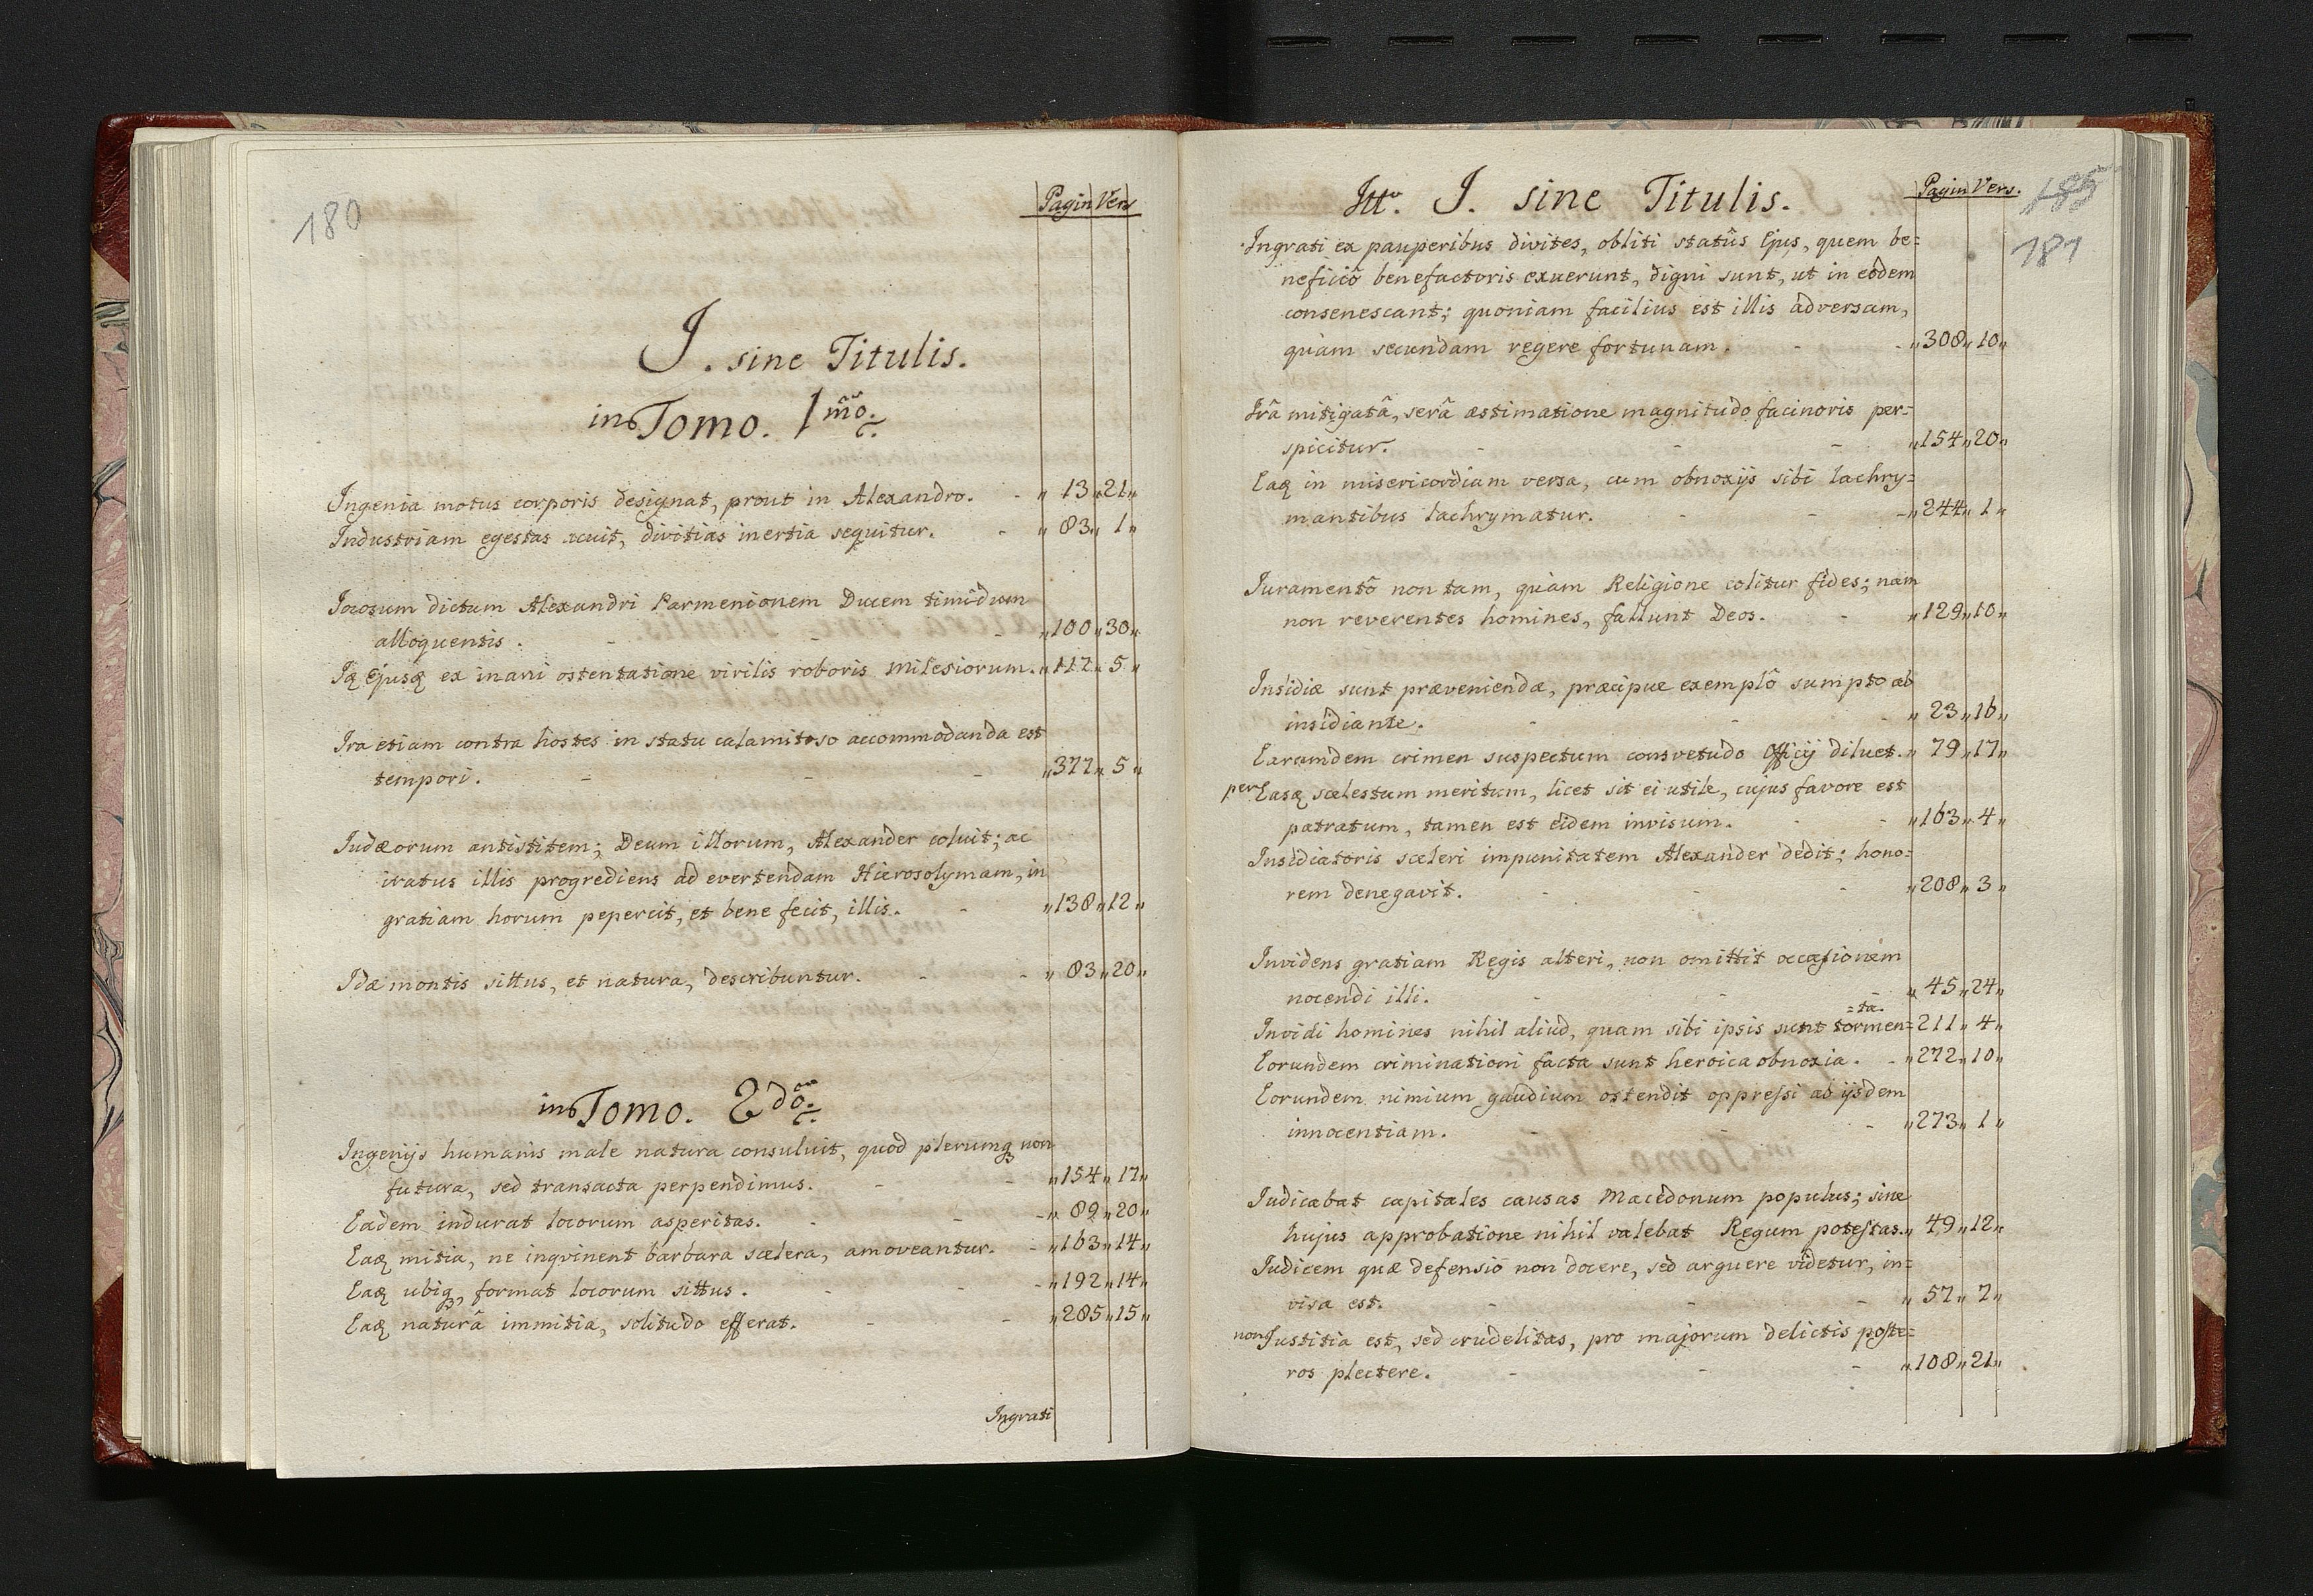 180
Pagin Vers
I. sine Titulis.
in Tomo. 1mo.
Ingenia motus corporis designat, prout in Alexandro. - „ 13 „ 21 „
Industriam egestas acuit, divitias inertia sequitur. - „ 83 „ 1 „
Jocosum dictum Alexandri Parmenionem Ducem timidum
alloquentis. - - - „ 100 „ 30 „
Iꝗ Ejusꝗ ex inani ostentatione virilis roboris Milesiorum. „ 112 „ 5 „
Ira etiam contra hostes in statu calamitoso accommodanda est
tempori. - - - „ 377 „ 5 „
Iudæorum antistitem; Deum illorum, Alexander coluit; ac
iratus illis progrediens ad evertendam Hierosolymam, in
gratiam horum pepercit, et bene fecit, illis. - „ 138 „ 12 „
Idæ montis sittus, et natura, describuntur. - - „ 83 „ 20 „
in Tomo. 2do.
Ingenijs humanis male natura consuluit, quod plerumꝗ non
futura, sed transacta perpendimus. - - „ 154 „ 17 „
Eadem indurat locorum asperitas. - - - „ 89 „ 20 „
Eaꝗ mitia, ne inqvinent barbara scelera, amoveantur. - „ 163 „ 14 „
Eaꝗ ubiꝗ, format locorum sittus. - - - „ 192 „ 14 „
Eaꝗ naturâ immitia, solitudo efferat. - - „ 285 „ 15 „
Ingrati
Ittr. I. sine Titulis.
Pagin Vers.
185
181
Ingrati ex pauperibus divites, obliti statûs Ejus, quem be=
neficiô benefactoris exuerunt, digni sunt, ut in eodem
consenescant; quoniam facilius est illis adversam,
quàm secundam regere fortunam. - - „ 308 „ 10 „
Irâ mitigatâ, serâ æstimatione magnitudo facinoris per=
spicitur. - - - „ 154 „ 20 „
Eaꝗ in misericordiam versa, cum obnoxijs sibi lachry=
mantibus lachrymatur. - - - „ 244 „ 1 „
Iuramentô non tam, quàm Religione colitur fides; nam
non reverentes homines, fallunt Deos. - „ 129 „ 10 „
Insidiæ sunt prævenienda, præcipue exemplô sumpto ab
insidiante. - - - „ 23 „ 16 „
Earumdem crimen suspectum consvetudo Officij diluet. „ 79 „ 17 „
per Easꝗ scelestum meritum, licet sit ei utile, cujus favore est
patratum, tamen est eidem invisum. - - „ 163 „ 4 „
Insidiatoris sceleri impunitatem Alexander dedit; hono=
rem denegavit. - - - „ 208 „ 3 „
Invidens gratiam Regis alteri, non omittit occasionem
nocendi illi. - - „ 45 „ 24 „
=ta.
Invidi homines nihil aliud, quam sibi ipsis sunt tormen= 211 „ 4 „
Eorundem criminationi facta sunt heroica obnoxia. - „ 272 „ 10 „
Eorundem nimium gaudium ostendit oppressi ab ijsdem
innocentiam. - - - „ 273 „ 1 „
Iudicabat capitales causas Macedonum populus; sine
hujus approbatione nihil valebat Regum potestas. „ 49 „ 12 „
Iudicem quæ defensio non docere, sed arguere videtur, in=
visa est. - - - „ 57 „ 7 „
non Justitia est, sed crudelitas, pro majorum delictis poste=
ros plectere. - - - „ 108 „ 21 „